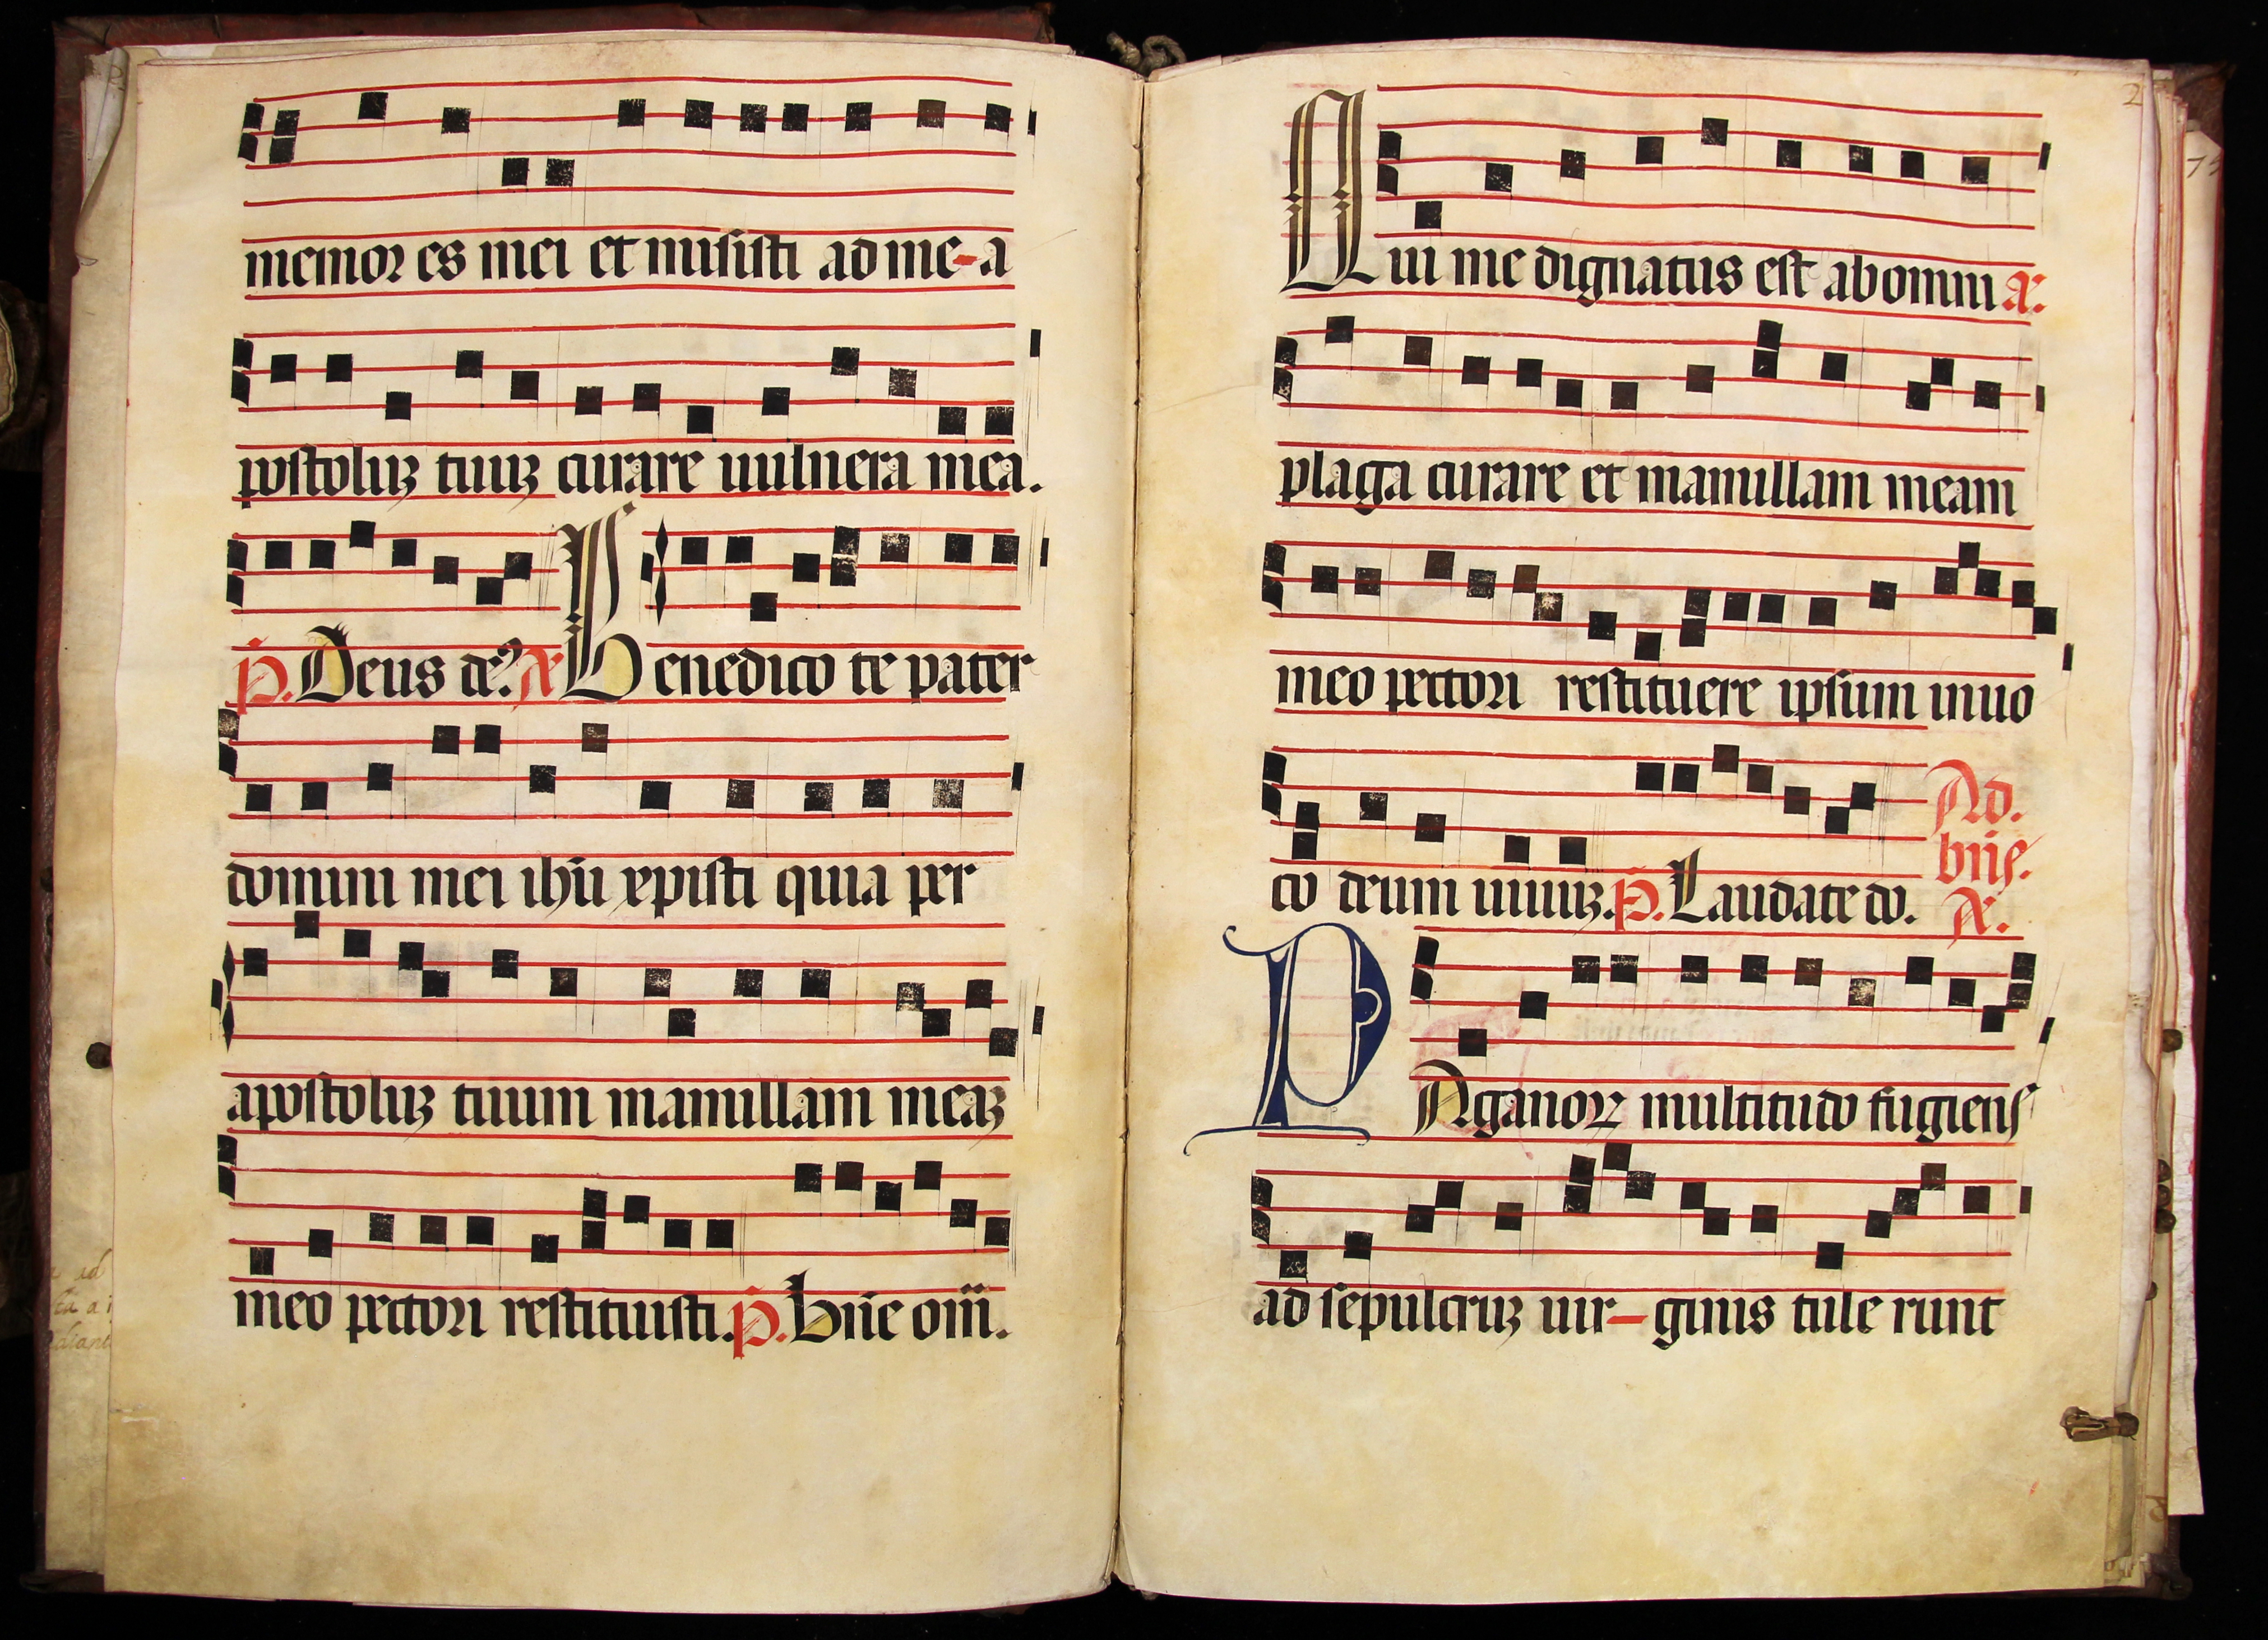 memor es mei et misisti ad me-a
postoluʒ tuuʒ curare uulnera mea.
p̄. Deus de9 a Benedico te pater
domini mei ihū xp̄isti quia per
apostoluʒ tuum mamillam meaʒ
meo pectori restituisti. p̄. Bn̄e om̄.
2
Qui me dignatus est ab omni a.
plaga curare et mamillam meam
meo pectori restituere ipsum inuo
co deum uiuuʒ. p̄. Laudate do.
Ad.
bn̄s.
a.
PAganoꝝ multitudo fugiens
ad sepulcruʒ uir-ginis tule runt